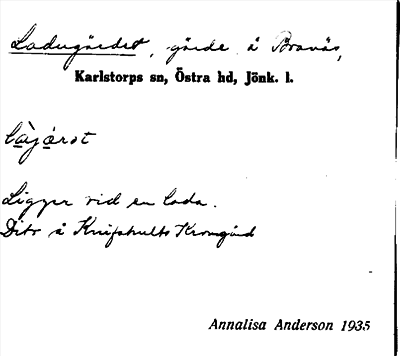 Ladugärdet, gärde å Bravås,
Karlstorps sn, Östra hd, Jönk. l.
Ligger vid en lada.
Dito å Knifshults Krongård
Annalisa Anderson 1935